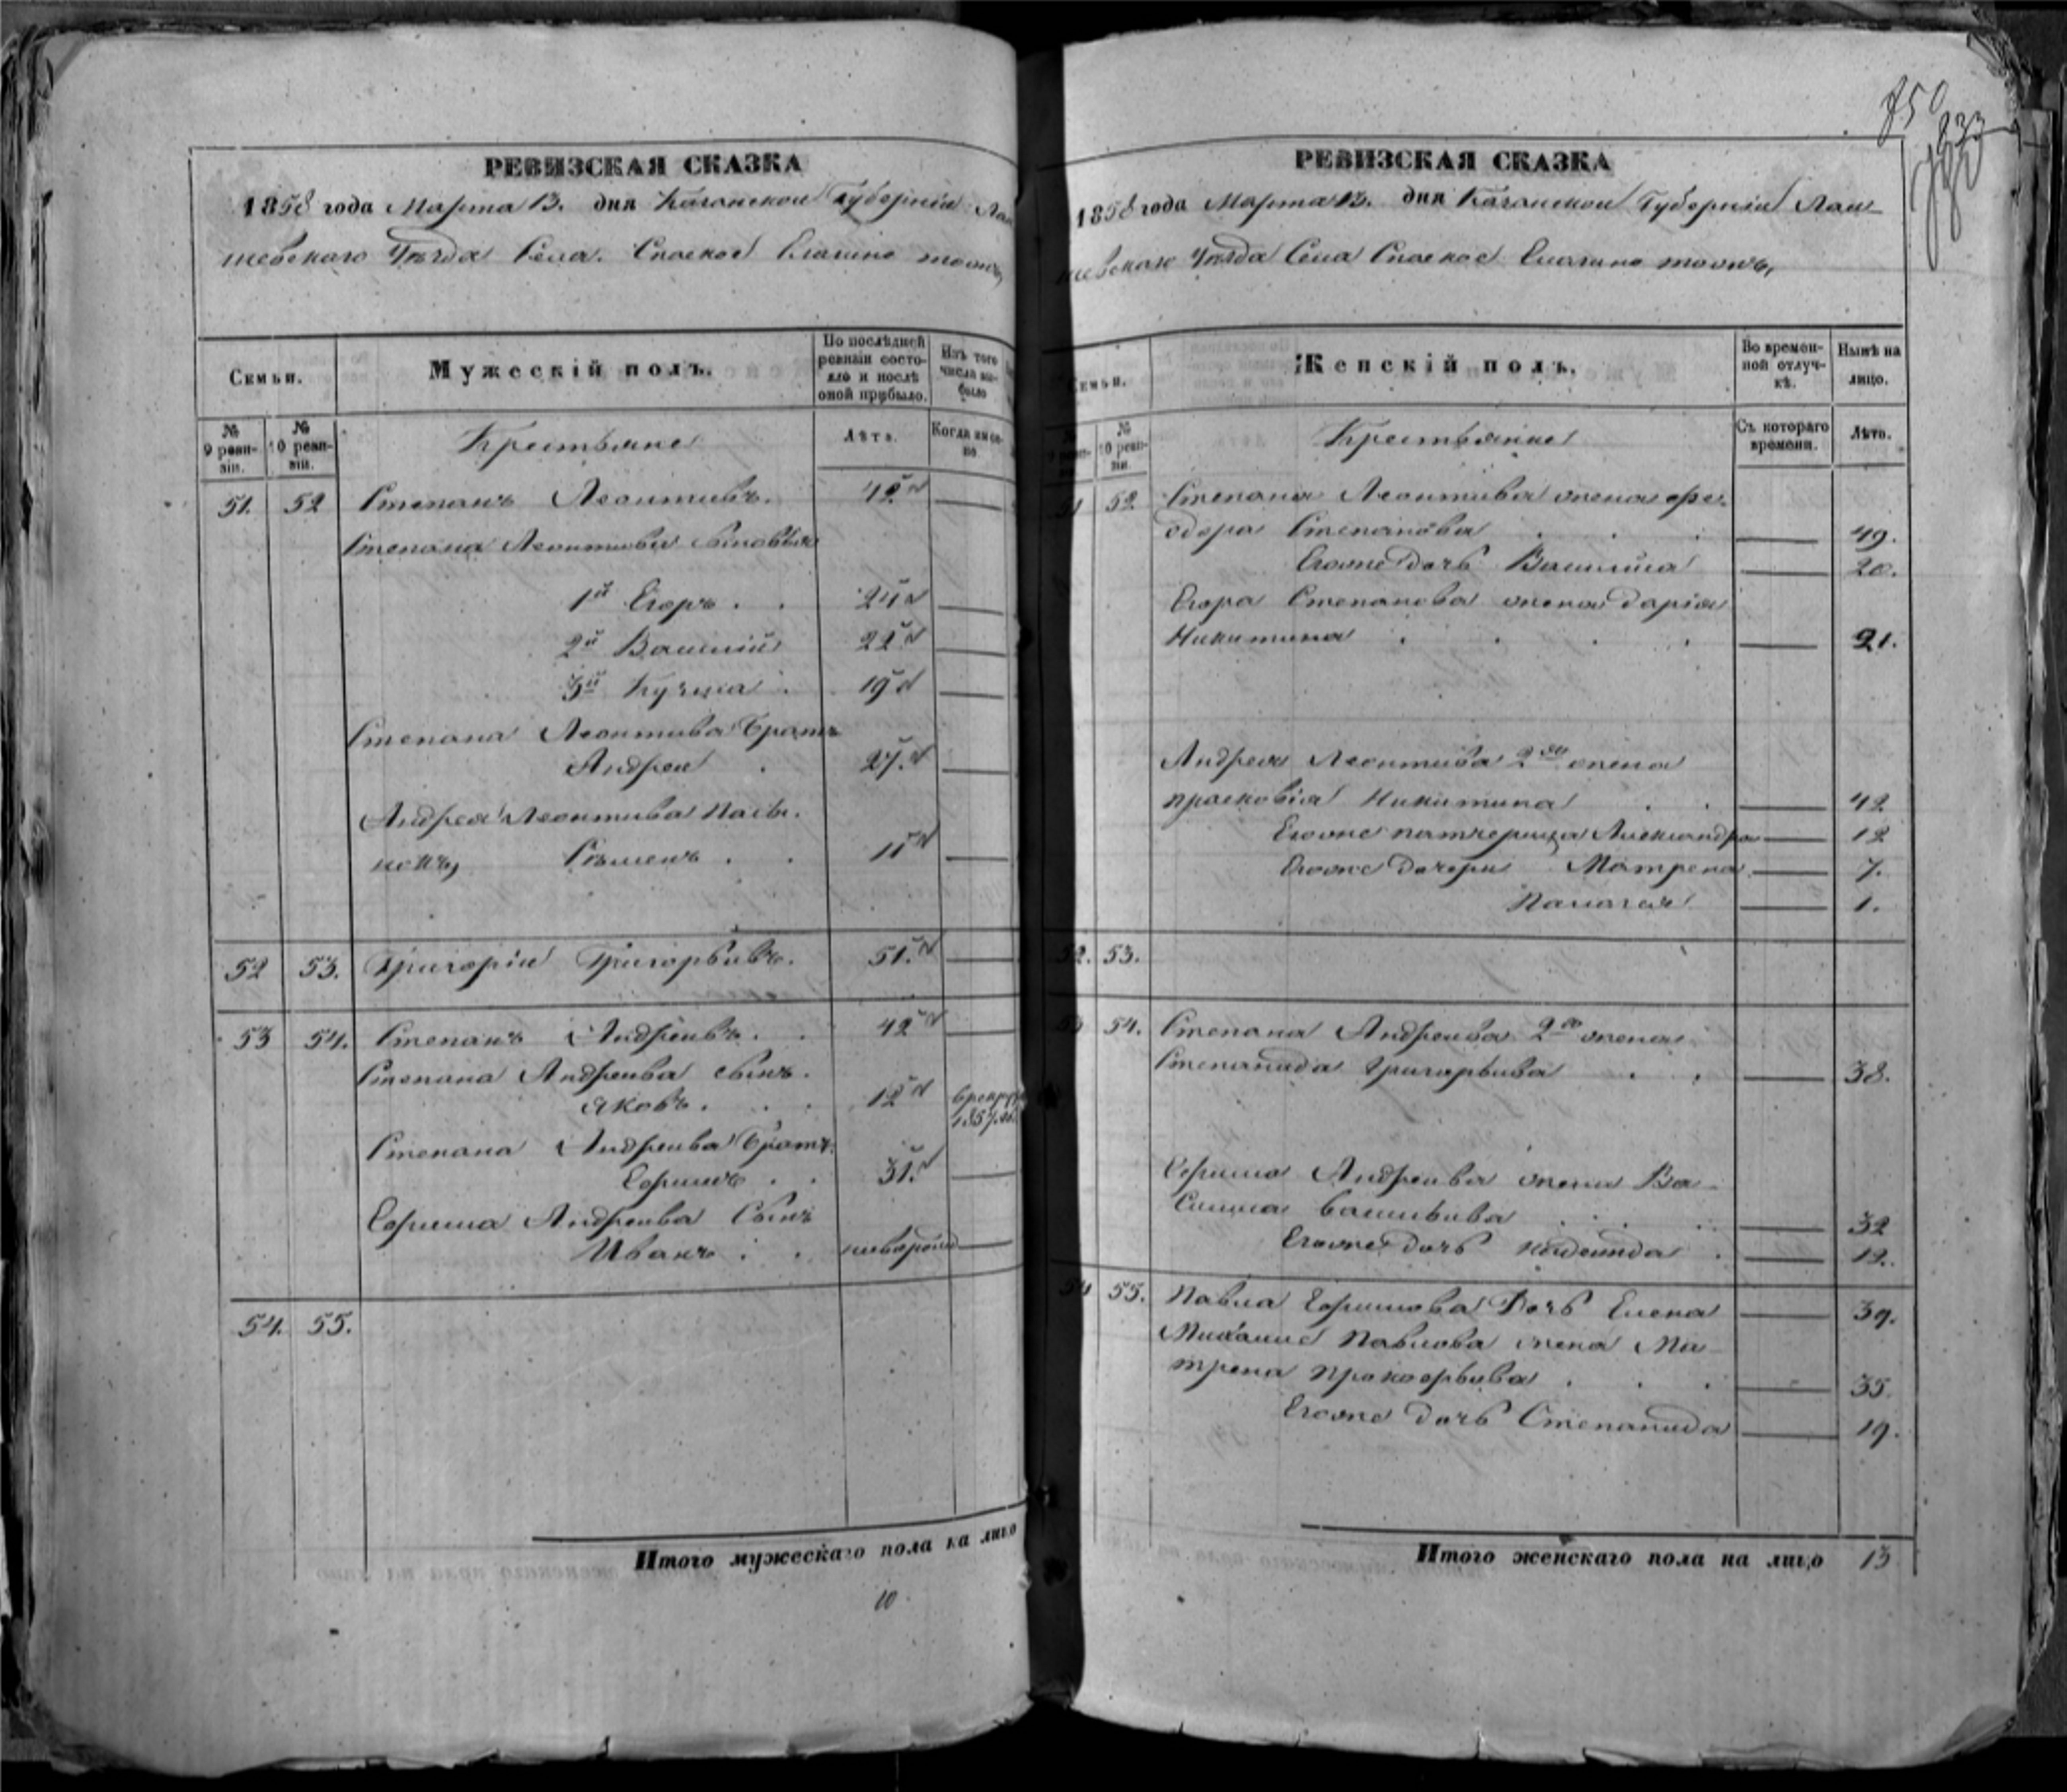 РЕВИЗСКАЯ СКАЗКА
1858 года Марта 13. дня Казанской Губерніи Лаи
шевскаго Уѣзда Села. Спаское Елагино тожъ,
Семьи.
Мужескій полъ.
По послѣдней ревизіи состояло и послѣ оной прибыло.
Изъ того числа выбыло
№ 9 ревизіи.
№ 10 ревизіи.
Крестьяне
Лѣта.
Когда именно
51. 52 Степанъ Леонтьивъ. 42
Степана Леонтьива сыновья
1й Егоръ . . 24
2й Василій 22
3й Кузма . 19
Степана Леонтьива братъ
Андрей . 27.
Андрея Леонтьива пасын
нокъ, Семенъ . . 11
52 53. Григорій Григорьивъ. 51.
53 54. Степанъ Андреивъ . . 42
Степана Андреива сынъ.
Яковъ. . . 12 1857.
Степана Андреива братъ.
Ефимъ . . 31.
Ефима Андреива сынъ
Иванъ . .
54. 55.
Итого мужескаго пола на лицо
10
750
РЕВИЗСКАЯ СКАЗКА
1858 года Марта 13. дня Казанской Губерніи Лаи
шевскаго Уѣзда Села Спаское Елагино тожъ,
Семьи.
Женскій полъ.
Во временной отлучкѣ.
Нынѣ на лицо.
№ 10 ревизіи.
Крестьянки
Съ котораго времени.
Лѣта.
51 52 Степана Леонтьива жена Фе
дора Степанова . . . 49.
Егоже дочь Василиса 20.
Егора Степанова жена Дарія
Никитина . . . . 21.
Андрея Леонтьива 2я жена
Прасковія Никитина . . 42
Егоже патчерица Александра 12
Егоже дочери Матрена 7.
Палагия 1.
52. 53.
53 54. Степана Андреива 2я жена
Степанида Григорьива . . 38.
Ефима Андреива жена Ва
силиса Васильива . . . 32
Егоже дочь Надежда . 12.
54 55. Павла Ефимова дочь Елена 39.
Михаила Павлова жена Ма
трена Прокофьива . . . 35.
Егоже дочь Степанида 19.
Итого женскаго пола на лицо 13